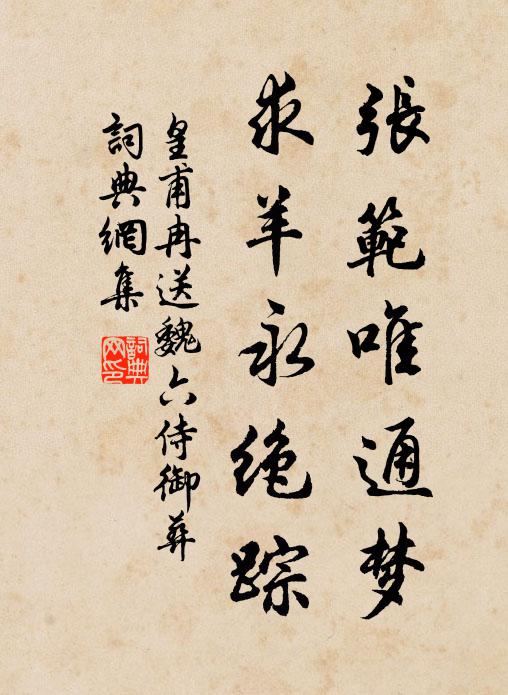 張範唯通梦
求羊永绝踪
皇甫冉送魏六侍御葬
詞典網集
詞典网印